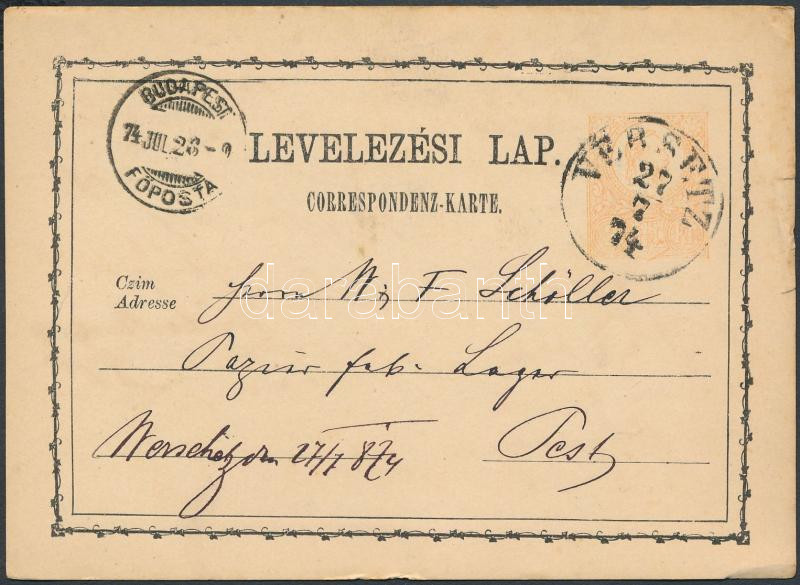 BUDAPEST
74 JUL. 28
FŐPOSTA
LEVELEZÉSI LAP.
CORRESPONDENZ-KARTE.
VERSETZ
27
7
74
Czim
Adresse
Herrn W. F. Schöller
Papier fab. Lager
Werschetz den 27/7 874
Pest
darabanth